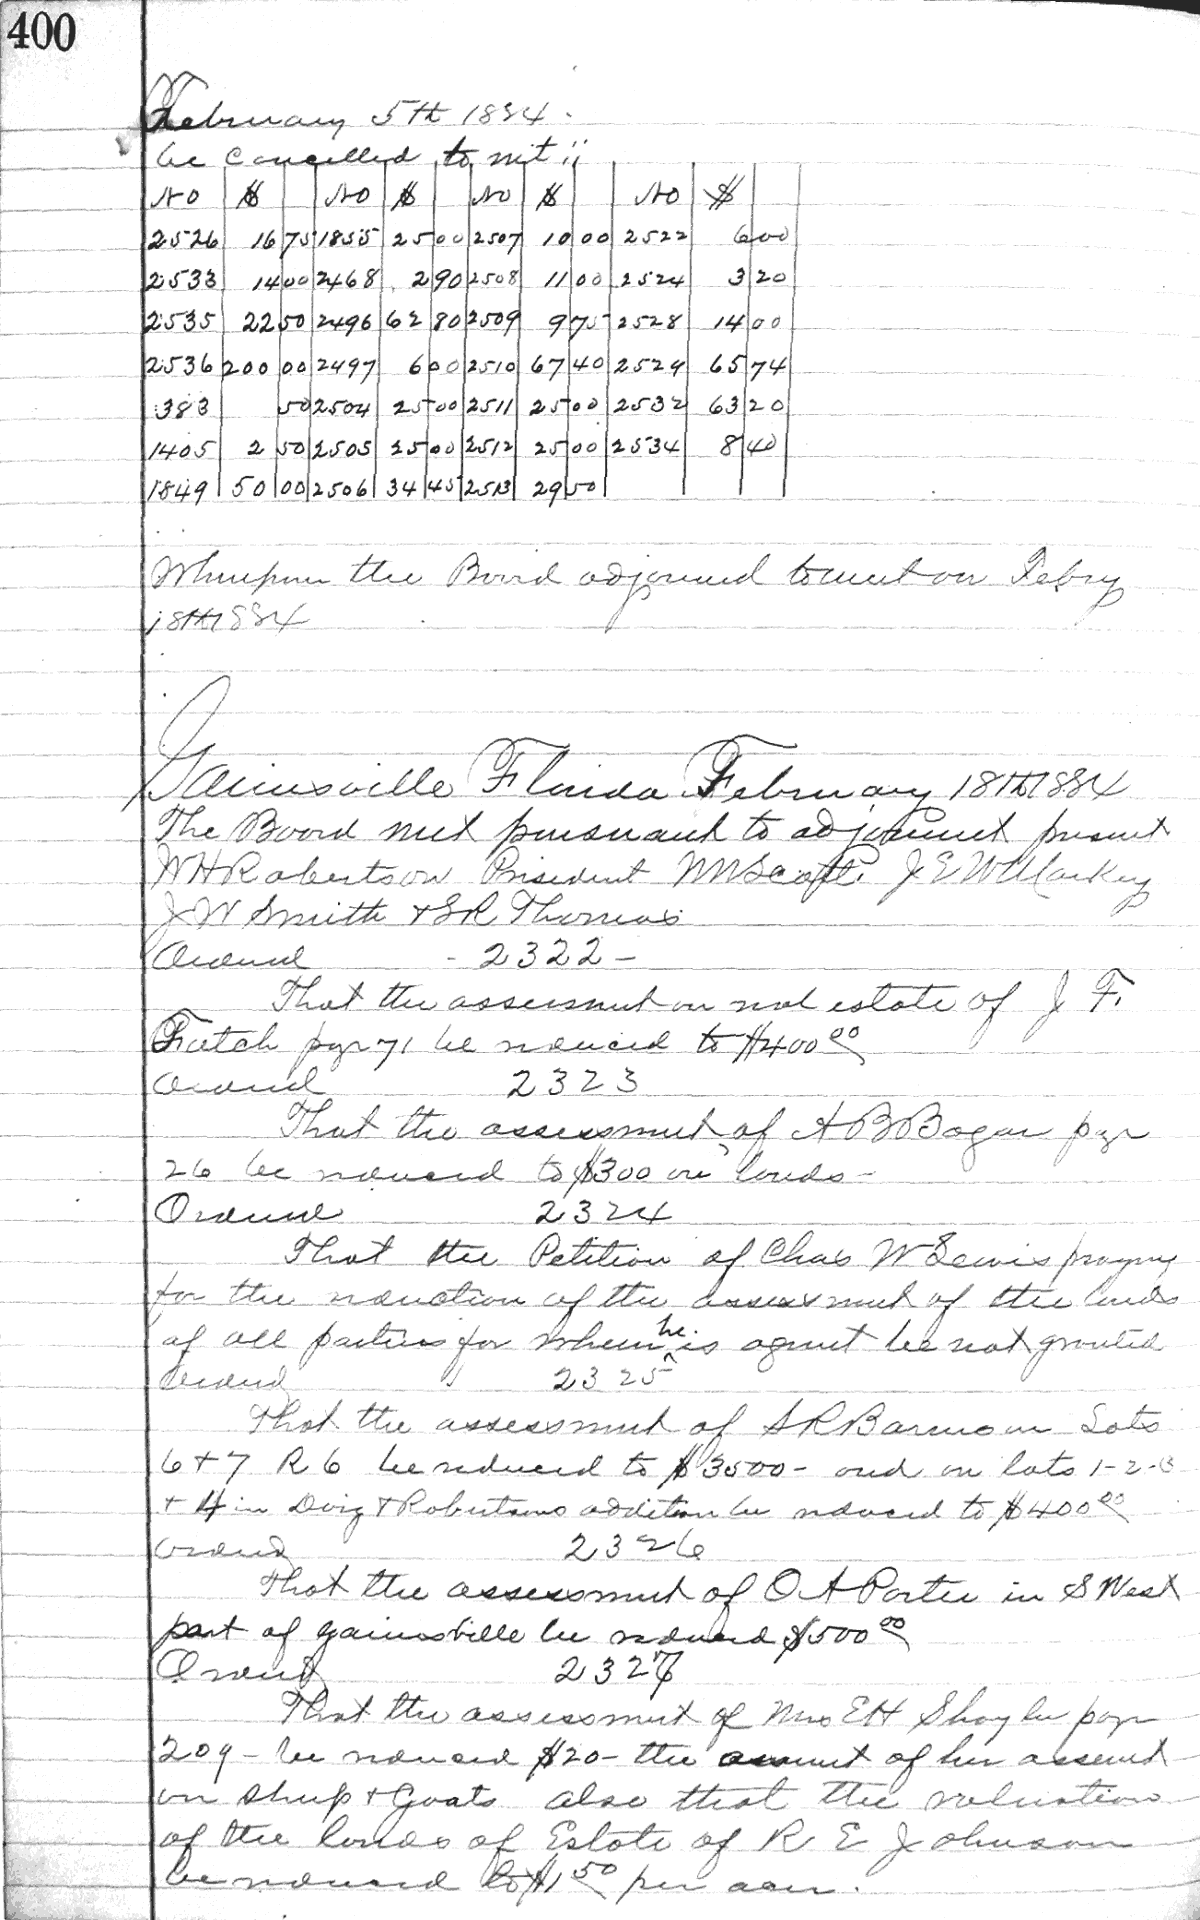 400
February 5th 1884.
be Cancelled to wit ;;
No $ No $ No $ No $
2526 16 75 1855 25 00 2507 10 00 2522 6 00
2533 14 00 2468 2 90 2508 11 00 2524 3 20
2535 22 50 2496 62 80 2509 9 75 2528 14 00
2536 200 00 2497 6 00 2510 67 40 2529 65 74
383 50 2504 25 00 2511 25 00 2532 63 20
1405 2 50 2505 25 00 2512 25 00 2534 8 40
1849 50 00 2506 34 45 2513 29 50
Whereupon the Board adjourned to meet on Febry
18th 1884
Gainesville Florida February 18th 1884
The Board met pursuant to adjournment present
W H Robertson President J E W
J W Smith + S R Thomas
Ordered - 2322 -
That the assessment on real estate of J F.
Futch page 71 be reduced to $400 00
Ordered 2323
That the assessment of A B Bogan page
26 be reduced to $300 on lands -
Ordered 2324
That the Petition of Chas W Lewis praying
for the reduction of the assessment of the lands
of all parties for whom he is agent be not granted
Ordered 2325
That the assessment of S R on Lots
6 + 7 R 6 be reduced to $3500 - and on lots 1-2-3
+ 4 in Doig + Robertsons addition be reduced to $400 00
Ordered 2326
That the assessment of O A Porter in S West
part of Gainesville be reduced $500 00
Ordered 2327
That the assessment of Mrs E H page
209 - be reduced $20 - the amount of her assemt
on Sheep + Goats also that the valuation
of the lands of Estate of R E Johnson
be reduced to $1 50 per acre.